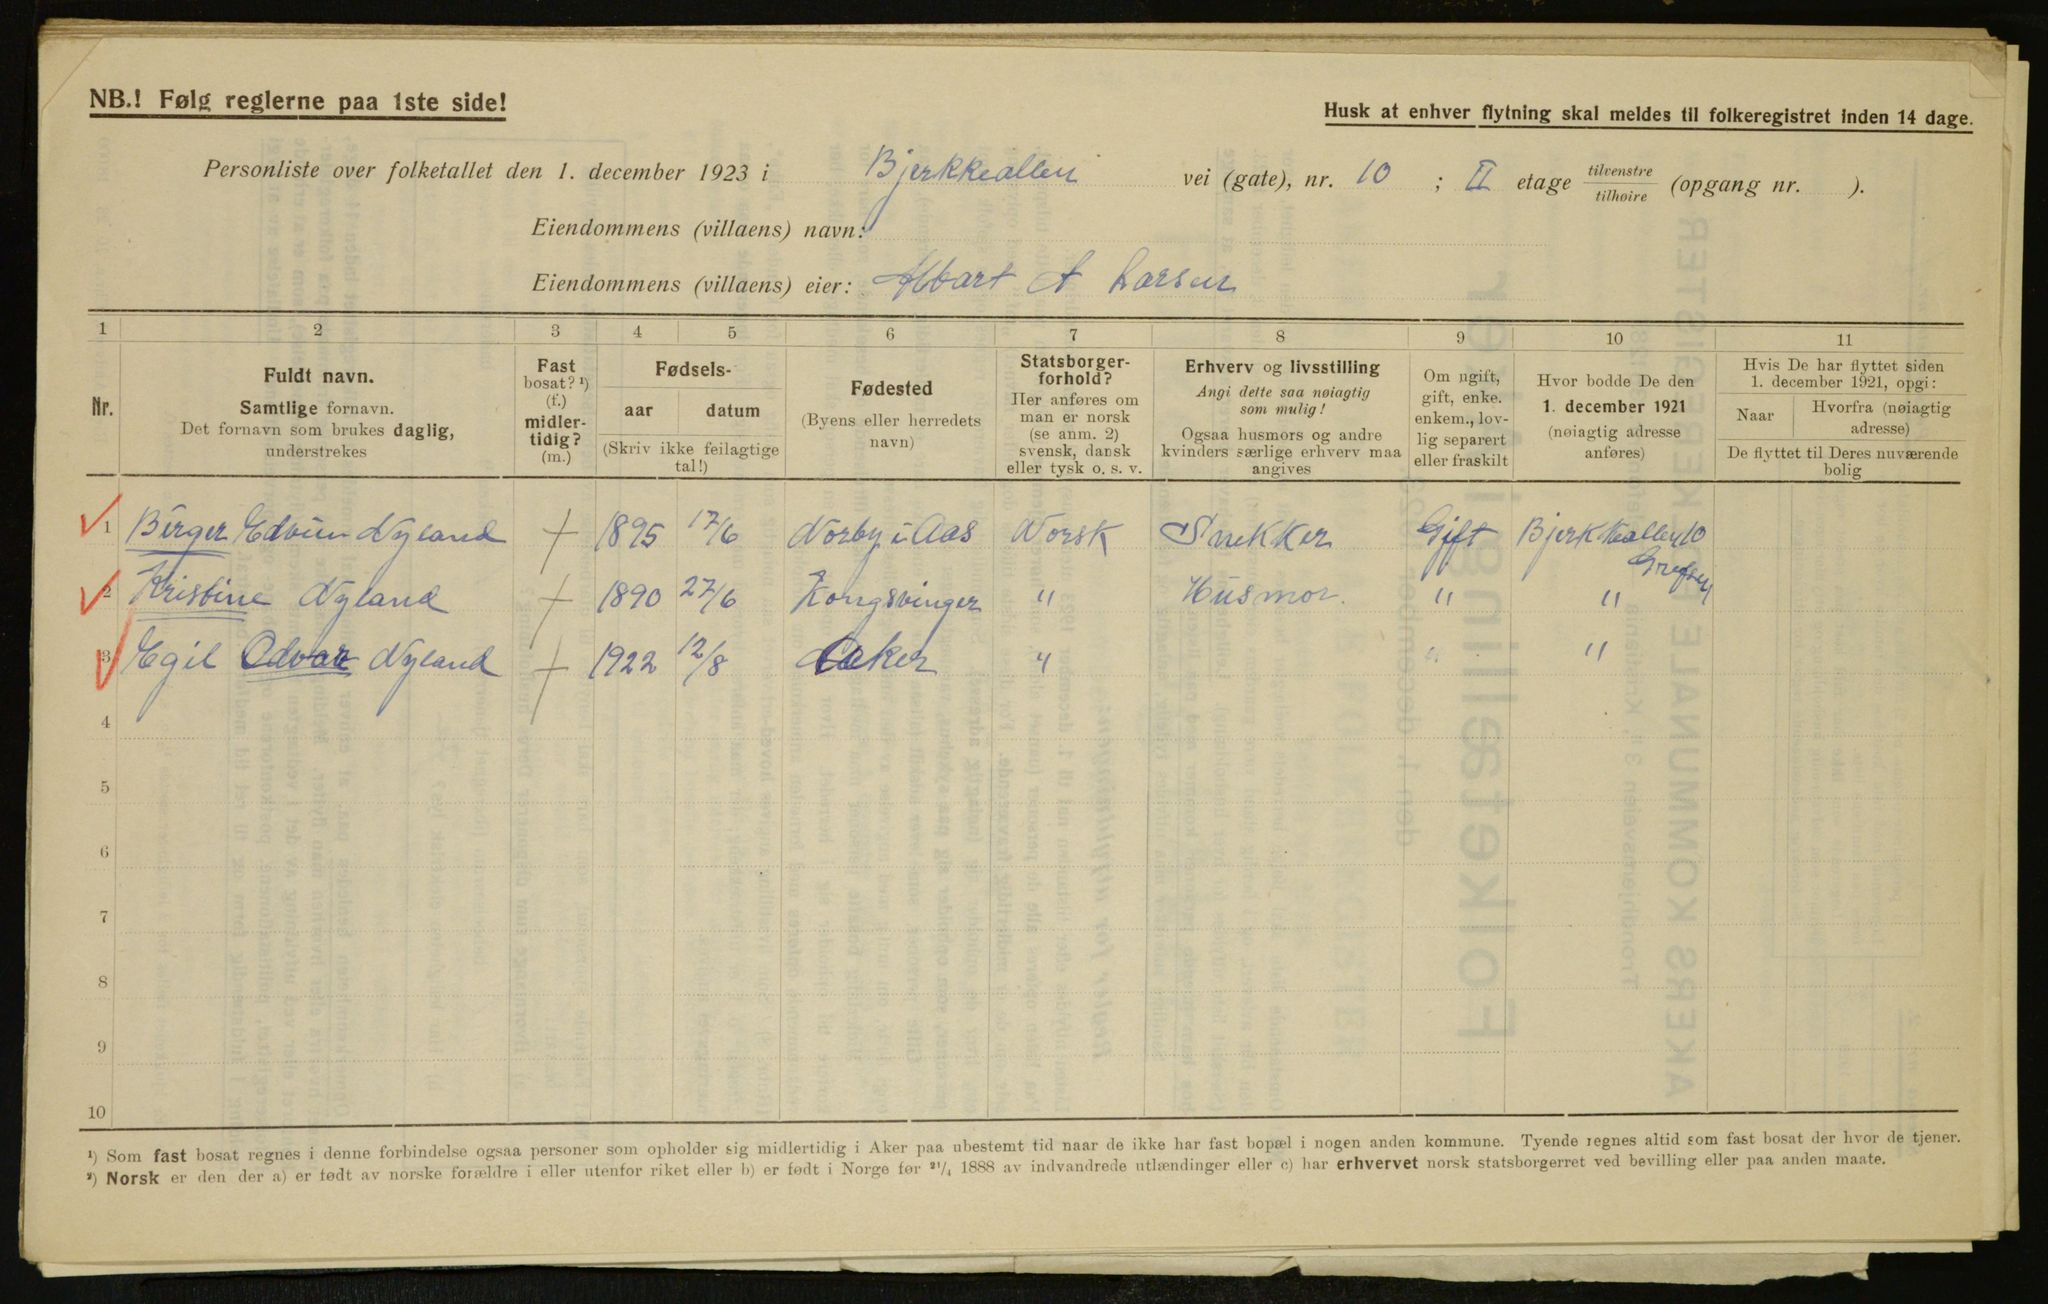 NB.! Følg reglerne paa 1ste side!
Husk at enhver flytning skal meldes til folkeregistret inden 14 dage.
Personliste over folketallet den 1. december 1923 i Bjerkkealleri vei (gate), nr. 10 ; II etage tilvenstre tilhøire (opgang nr. ).
Eiendommens (villaens) navn:
Eiendommens (villaens) eier: Albart A Larsen
1 2 3 4 5 6 7 8 9 10 11
Nr.
Fuldt navn.
Samtlige fornavn.
Det fornavn som brukes daglig,
understrekes
Fast
bosat? ¹)
(f.)
midler-
tidig?
(m.)
Fødsels-
aar datum
(Skriv ikke feilagtige
tal!)
Fødested
(Byens eller herredets
navn)
Statsborger-
forhold?
Her anføres om
man er norsk
(se anm. 2)
svensk, dansk
eller tysk o. s. v.
Erhverv og livsstilling
Angi dette saa nøiagtig
som mulig!
Ogsaa husmors og andre
kvinders særlige erhverv maa
angives
Om ugift,
gift, enke.
enkem., lov-
lig separert
eller fraskilt
Hvor bodde De den
1. december 1921
(nøiagtig adresse
anføres)
Hvis De har flyttet siden
1. december 1921, opgi:
Naar
Hvorfra (nøiagtig
adresse)
De flyttet til Deres nuværende
bolig
1 Birger Edvin Nyland + 1895 17/6 Norby i Aas Norsk Snekker Gift Bjerkkeallen 10
Grefsen
2 Kristine Nyland + 1890 27/6 Kongsvinger " Husmor. " "
3 Egil Odvar Nyland + 1922 12/8 Aker " " "
4
5
6
7
8
9
10
¹) Som fast bosat regnes i denne forbindelse ogsaa personer som opholder sig midlertidig i Aker paa ubestemt tid naar de ikke har fast bopæl i nogen anden kommune. Tyende regnes altid som fast bosat der hvor de tjener.
²) Norsk er den der a) er født av norske forældre i eller utenfor riket eller b) er født i Norge før ²¹/₄ 1888 av indvandrede utlændinger eller c) har erhvervet norsk statsborgerret ved bevilling eller paa anden maate.